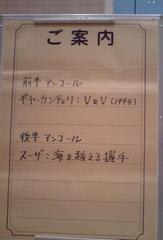 ご案内
前半アンコール
ギヤ・カンチェリ：V&V(1994)
後半アンコール
スーザ：海を越える握手